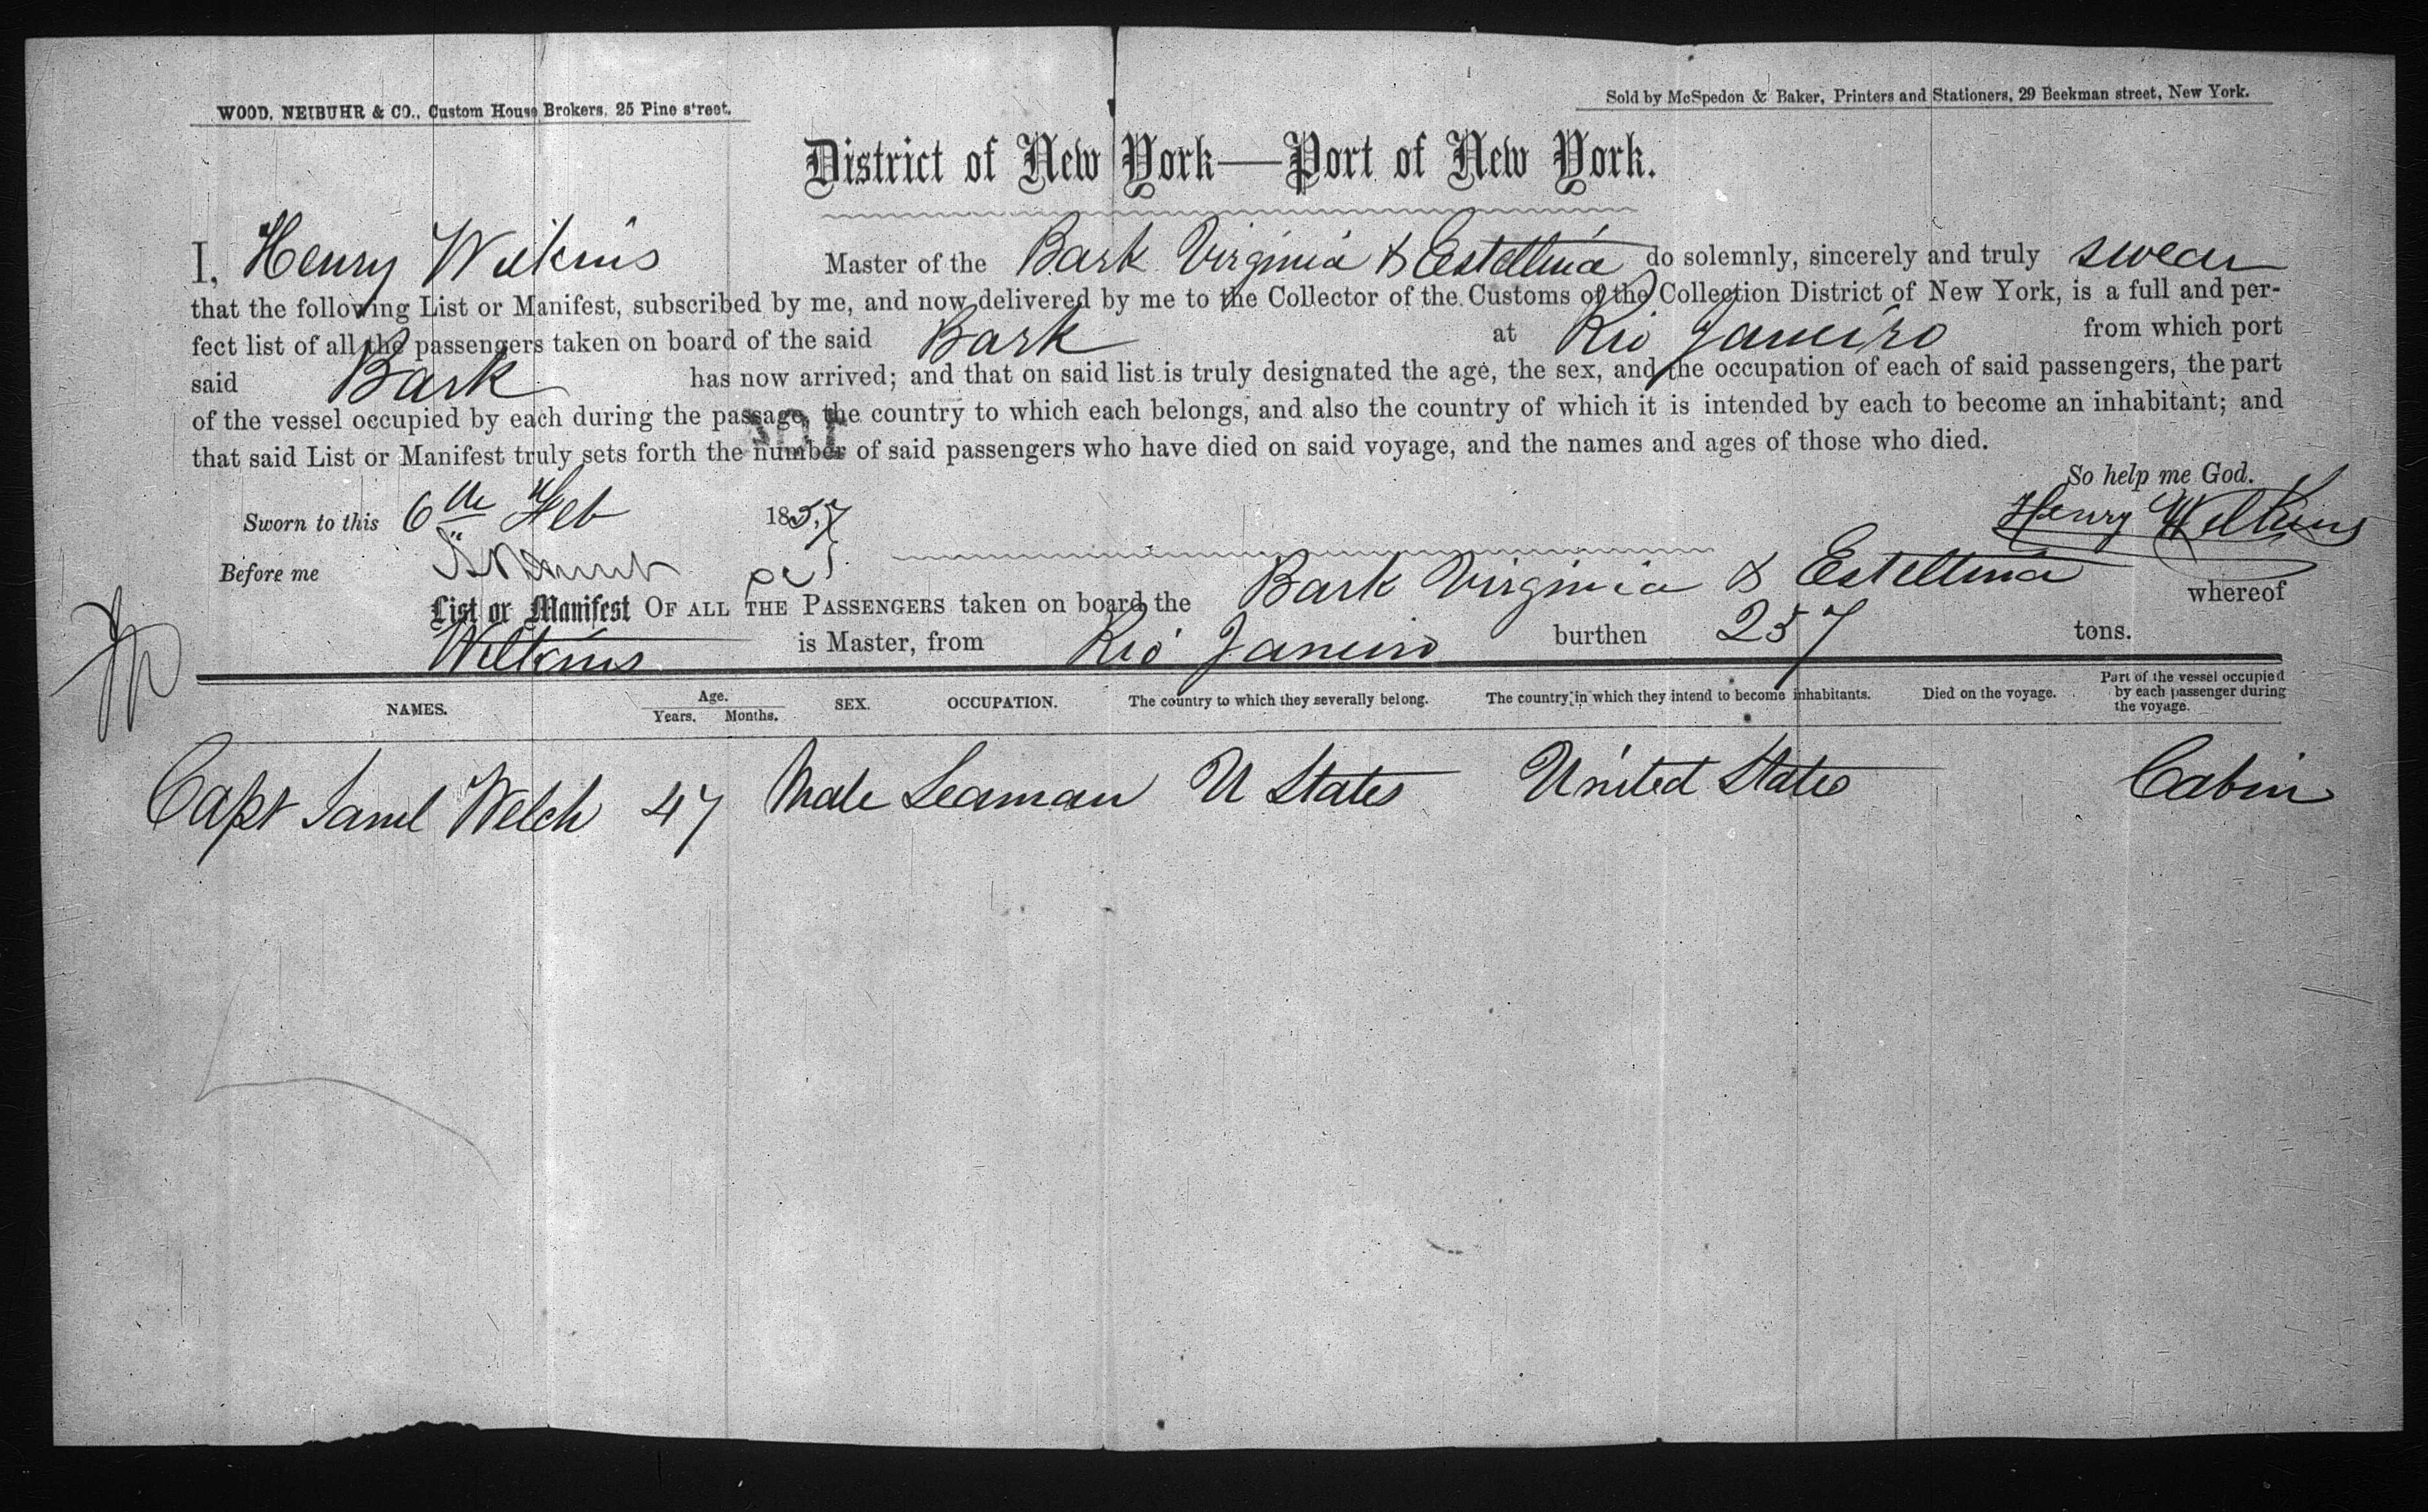 WOOD, NEIBUHR & CO., Custom House Brokers, 25 Pine street.
Sold by McSpedon & Baker, Printers and Stationers, 29 Beekman street, New York.
District of New York—Port of New York.
I, Henry Wilkins Master of the Bark Virginia & Estellina do solemnly, sincerely and truly swear
that the following List or Manifest, subscribed by me, and now delivered by me to the Collector of the Customs of the Collection District of New York, is a full and per-
fect list of all the passengers taken on board of the said Bark at Rio Janeiro from which port
said Bark has now arrived; and that on said list is truly designated the age, the sex, and the occupation of each of said passengers, the part
of the vessel occupied by each during the passage, the country to which each belongs, and also the country of which it is intended by each to become an inhabitant; and
that said List or Manifest truly sets forth the number of said passengers who have died on said voyage, and the names and ages of those who died.
So help me God.
Sworn to this 6th Feb 1857
Henry Wilkins
Before me
List or Manifest OF ALL THE PASSENGERS taken on board the Bark Virginia & Estellina whereof
Wilkins is Master, from Rio Janeiro burthen 257 tons.
NAMES. Age. Years. Months. SEX. OCCUPATION. The country to which they severally belong. The country in which they intend to become inhabitants. Died on the voyage. Part of the vessel occupied by each passenger during the voyage.
Capt Saml Welch 47 Male Seaman U States United States Cabin